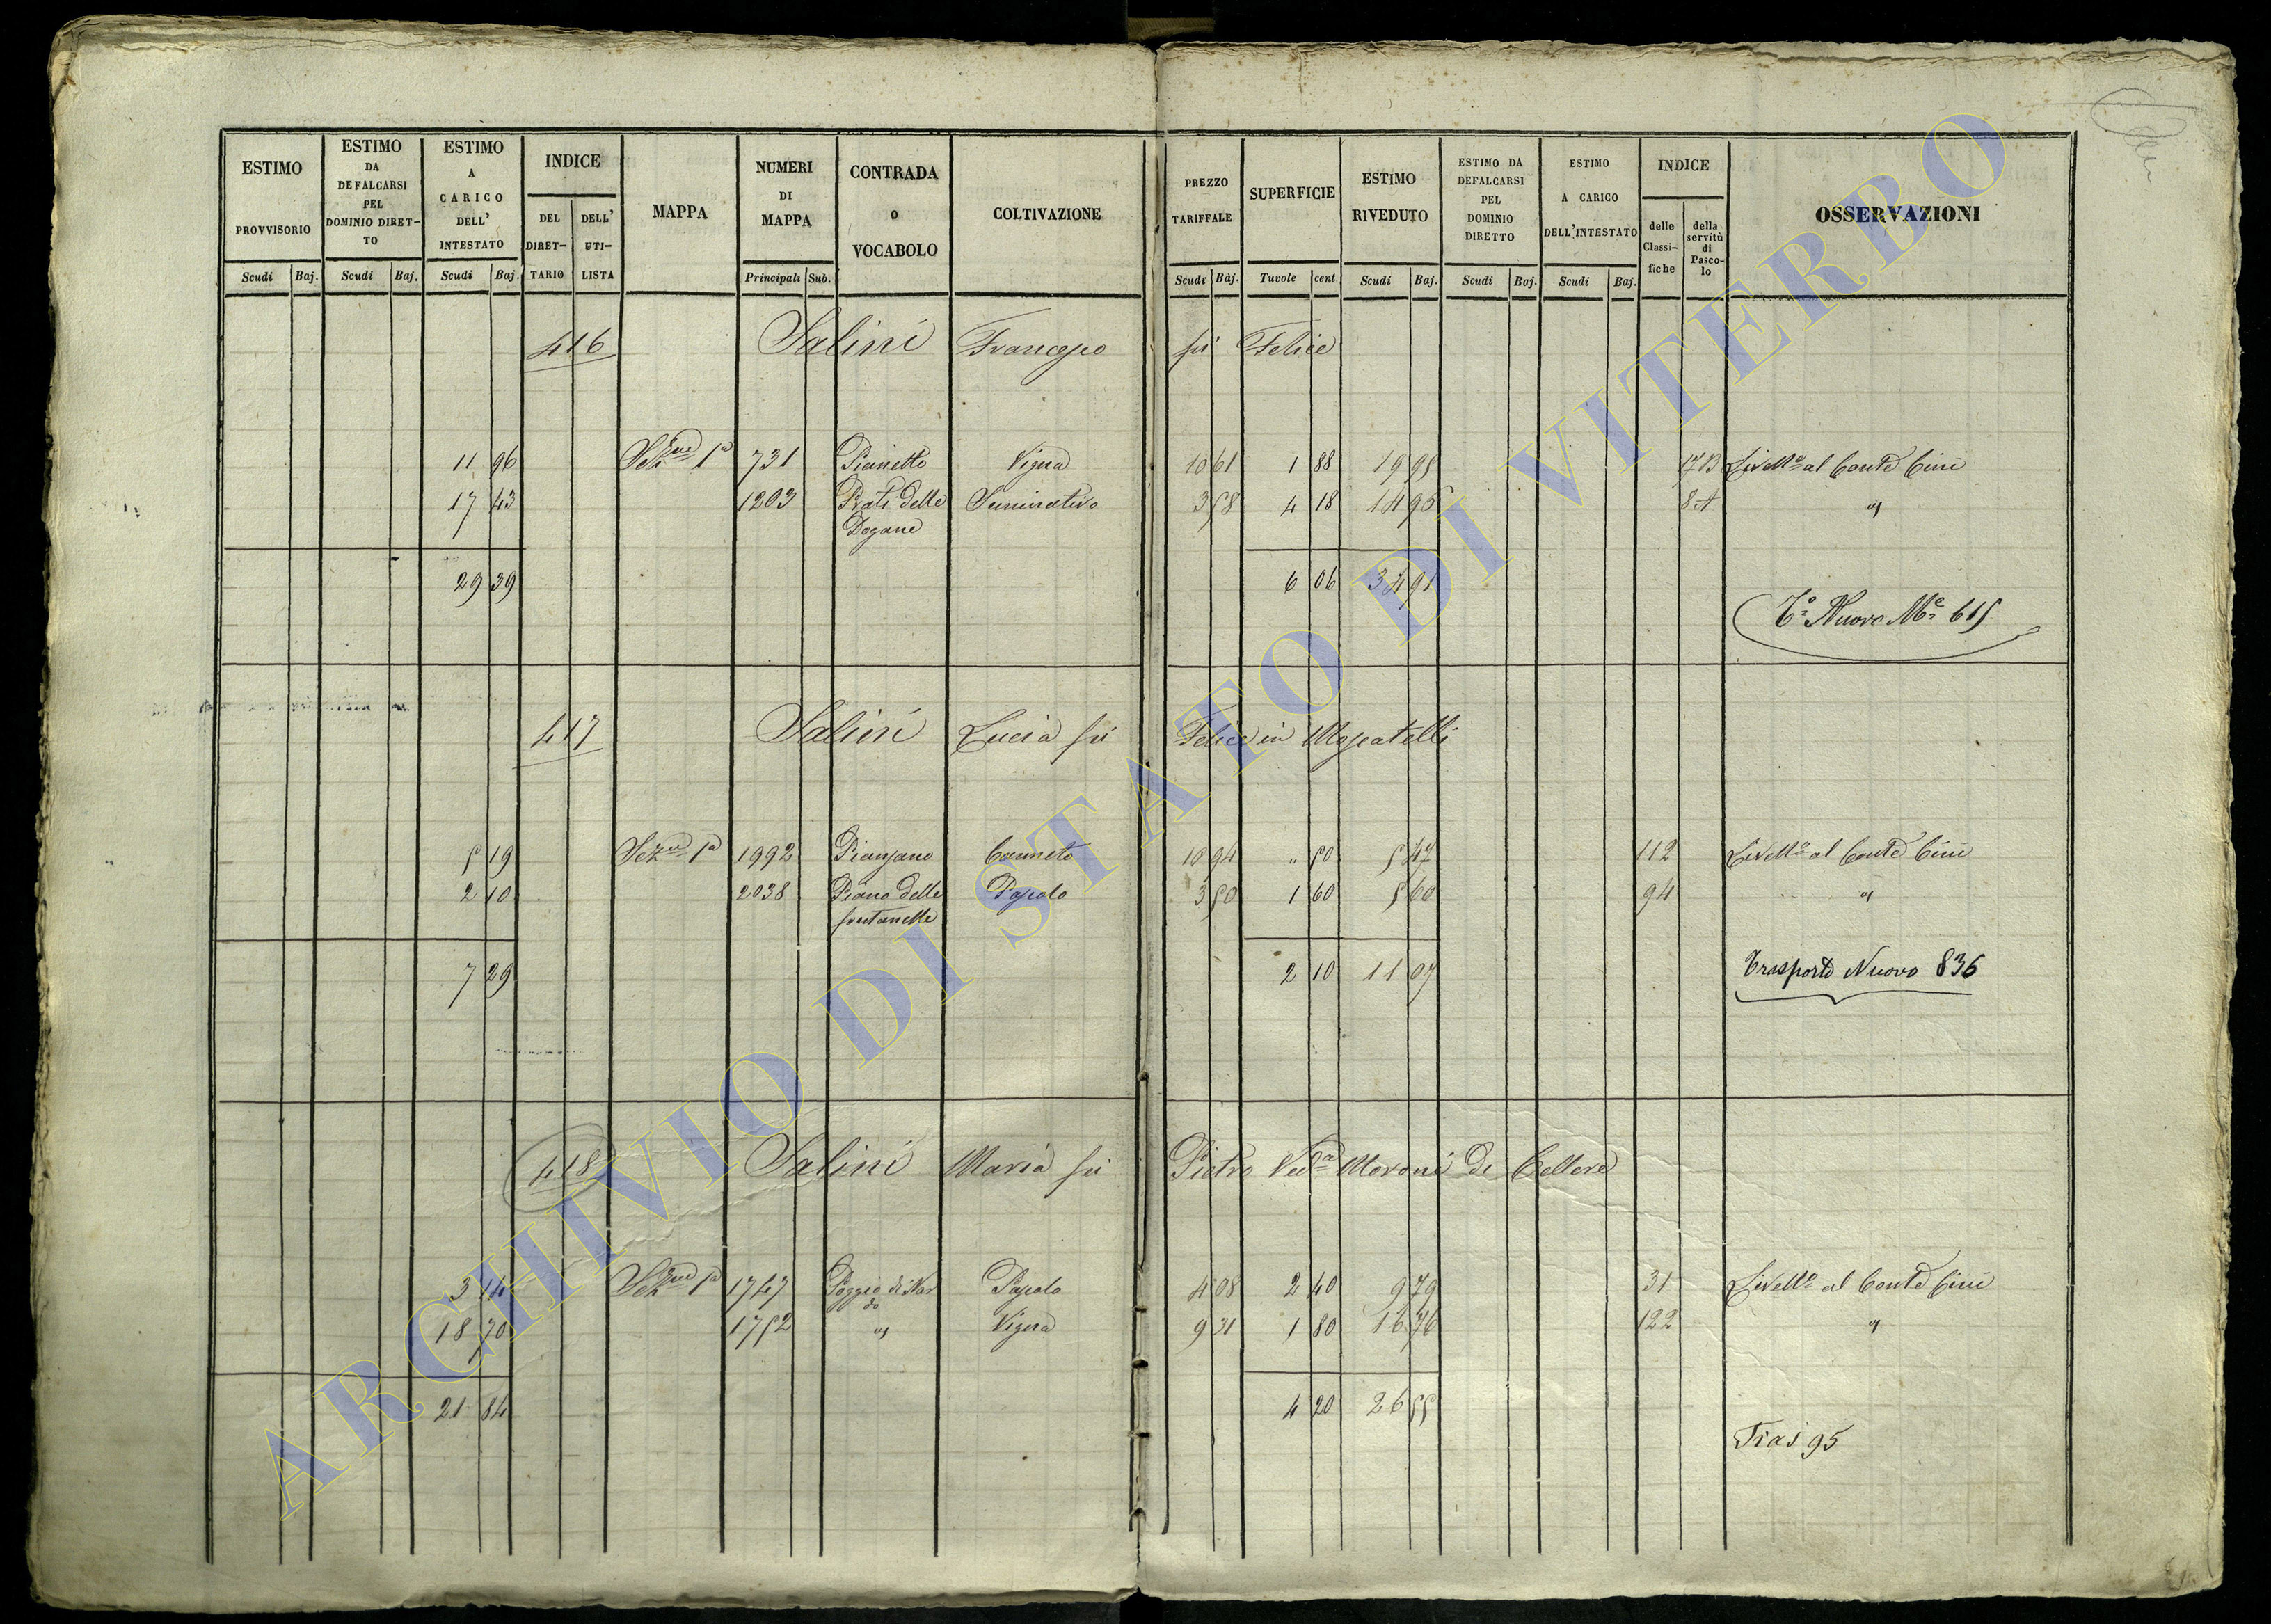 ESTIMO PROVVISORIO Scudi Baj.
ESTIMO DA DEFALCARSI PEL DOMINIO DIRET-TO Scudi Baj.
ESTIMO A CARICO DELL' INTESTATO Scudi Baj.
INDICE DEL DIRET-TARIO DELL' UTI-LISTA
MAPPA
NUMERI DI MAPPA Principali Sub.
CONTRADA O VOCABOLO
COLTIVAZIONE
PREZZO TARIFFALE Scudi Baj.
SUPERFICIE Tavole cent
ESTIMO RIVEDUTO Scudi Baj.
ESTIMO DA DEFALCARSI PEL DOMINIO DIRETTO Scudi Baj.
ESTIMO A CARICO DELL'INTESTATO Scudi Baj.
INDICE delle Classi-fiche della servitù di Pasco-lo
OSSERVAZIONI
416 Salini Francesco fu Felice
11 96 Sez.ne 1a 731 Pianetto Vigna 10 61 1 88 19 95 Livello al Conte Cini
17 43 1203 Prati delle Dogane Seminativo 3 58 4 18 14 96 84 "
29 39 6 06 34 91
To Nuovo Me 615
417 Salini Lucia fu Felice in Moscatelli
5 19 Sez.ne 1a 1992 Pianzano Canneto 10 94 " 50 5 47 112 Livello al Conte Cini
2 10 2038 Piano delle fontanelle Pascolo 3 50 1 60 5 60 94 "
7 29 2 10 11 07
Trasporto Nuovo 836
418 Salini Maria fu Pietro Ved.a Moroni di Cellere
3 14 Sez.ne 1a 1747 Poggio di Nardo Pascolo 4 08 2 40 9 79 31 Livello al Conte Cini
18 70 1752 " Vigna 9 31 1 80 16 76 122 "
21 84 4 20 26 55
Tras 95
ARCHIVIO DI STATO DI VITERBO